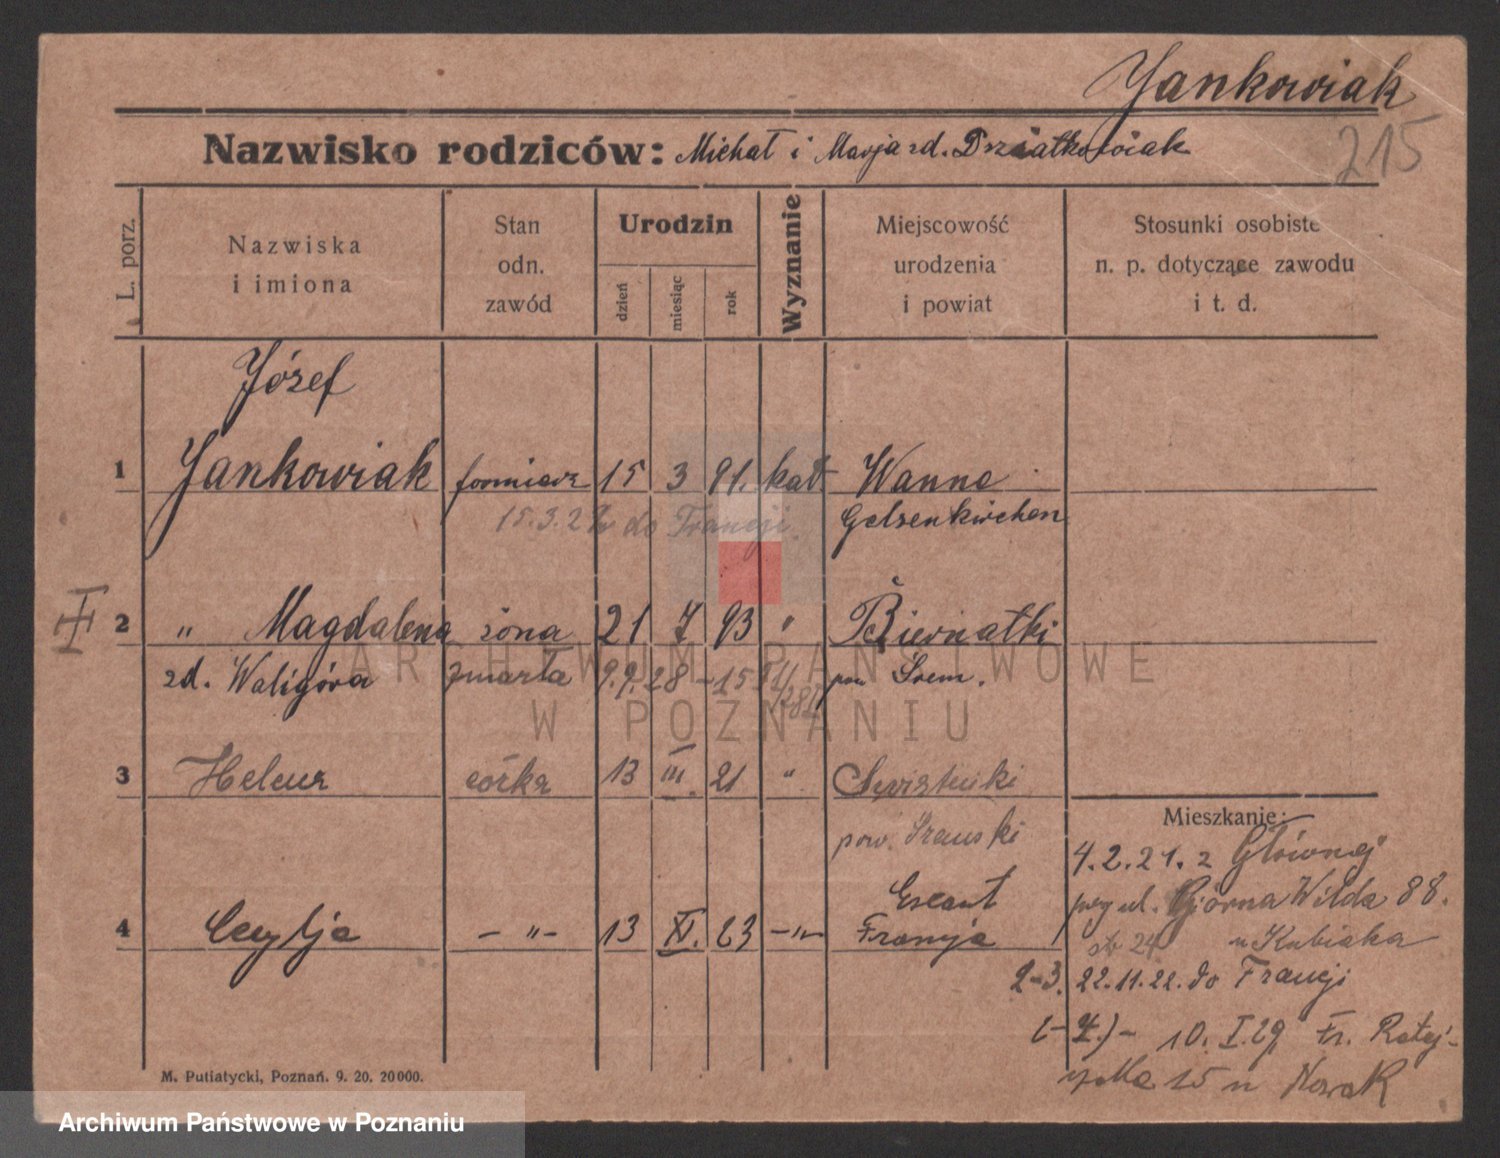 Jankowiak
215
Nazwisko rodziców: Michał i Marja zd. Dziatkowiak
L. porz.
Nazwiska i imiona
Stan odn. zawód
Urodzin
dzień
miesiąc
rok
Wyznanie
Miejscowość urodzenia i powiat
Stosunki osobiste n. p. dotyczące zawodu i t. d.
Józef
1 Jankowiak formierz 15 3 91. kat Wanne
15.3.22 do Francji. Gelsenkirchen
2 " Magdalena żona 21 7 93 " Biernatki
zd. Waligóra zmarła 9.9.28 pow Śrem.
3 Helena córka 13 III. 21 "
pow. Śremski
Mieszkanie:
4.2.21. z Głównej
przy ul. Górna Wilda 88.
24 u Kubiaka
Escaut
4 Cecylja – " – 13 XI. 23 – " – Francja
2–3. 22.11.22. do Francji
10. I. 29 Fr. Rataj-
czaka 15 u Nowak
M. Putiatycki, Poznań. 9. 20. 20000.
ARCHIWUM PAŃSTWOWE
W POZNANIU
Archiwum Państwowe w Poznaniu